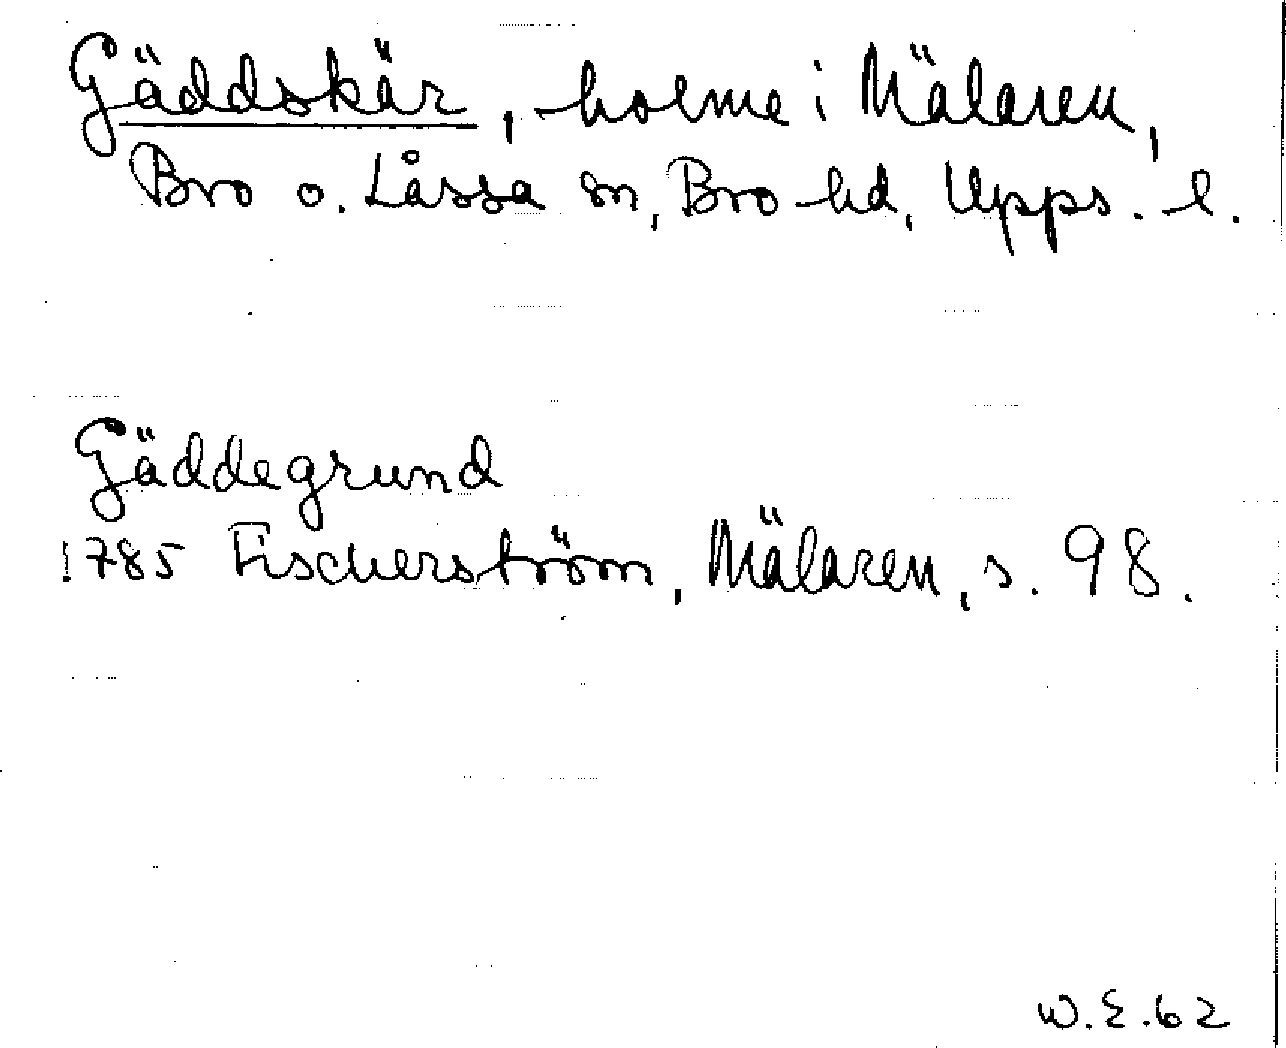 Gäddskär, holme i Mälaren,
Bro o. Låssa sn, Bro hd, Upps. l.
Gäddegrund
1785 Fischerström, Mälaren, s. 98.
W.E.62